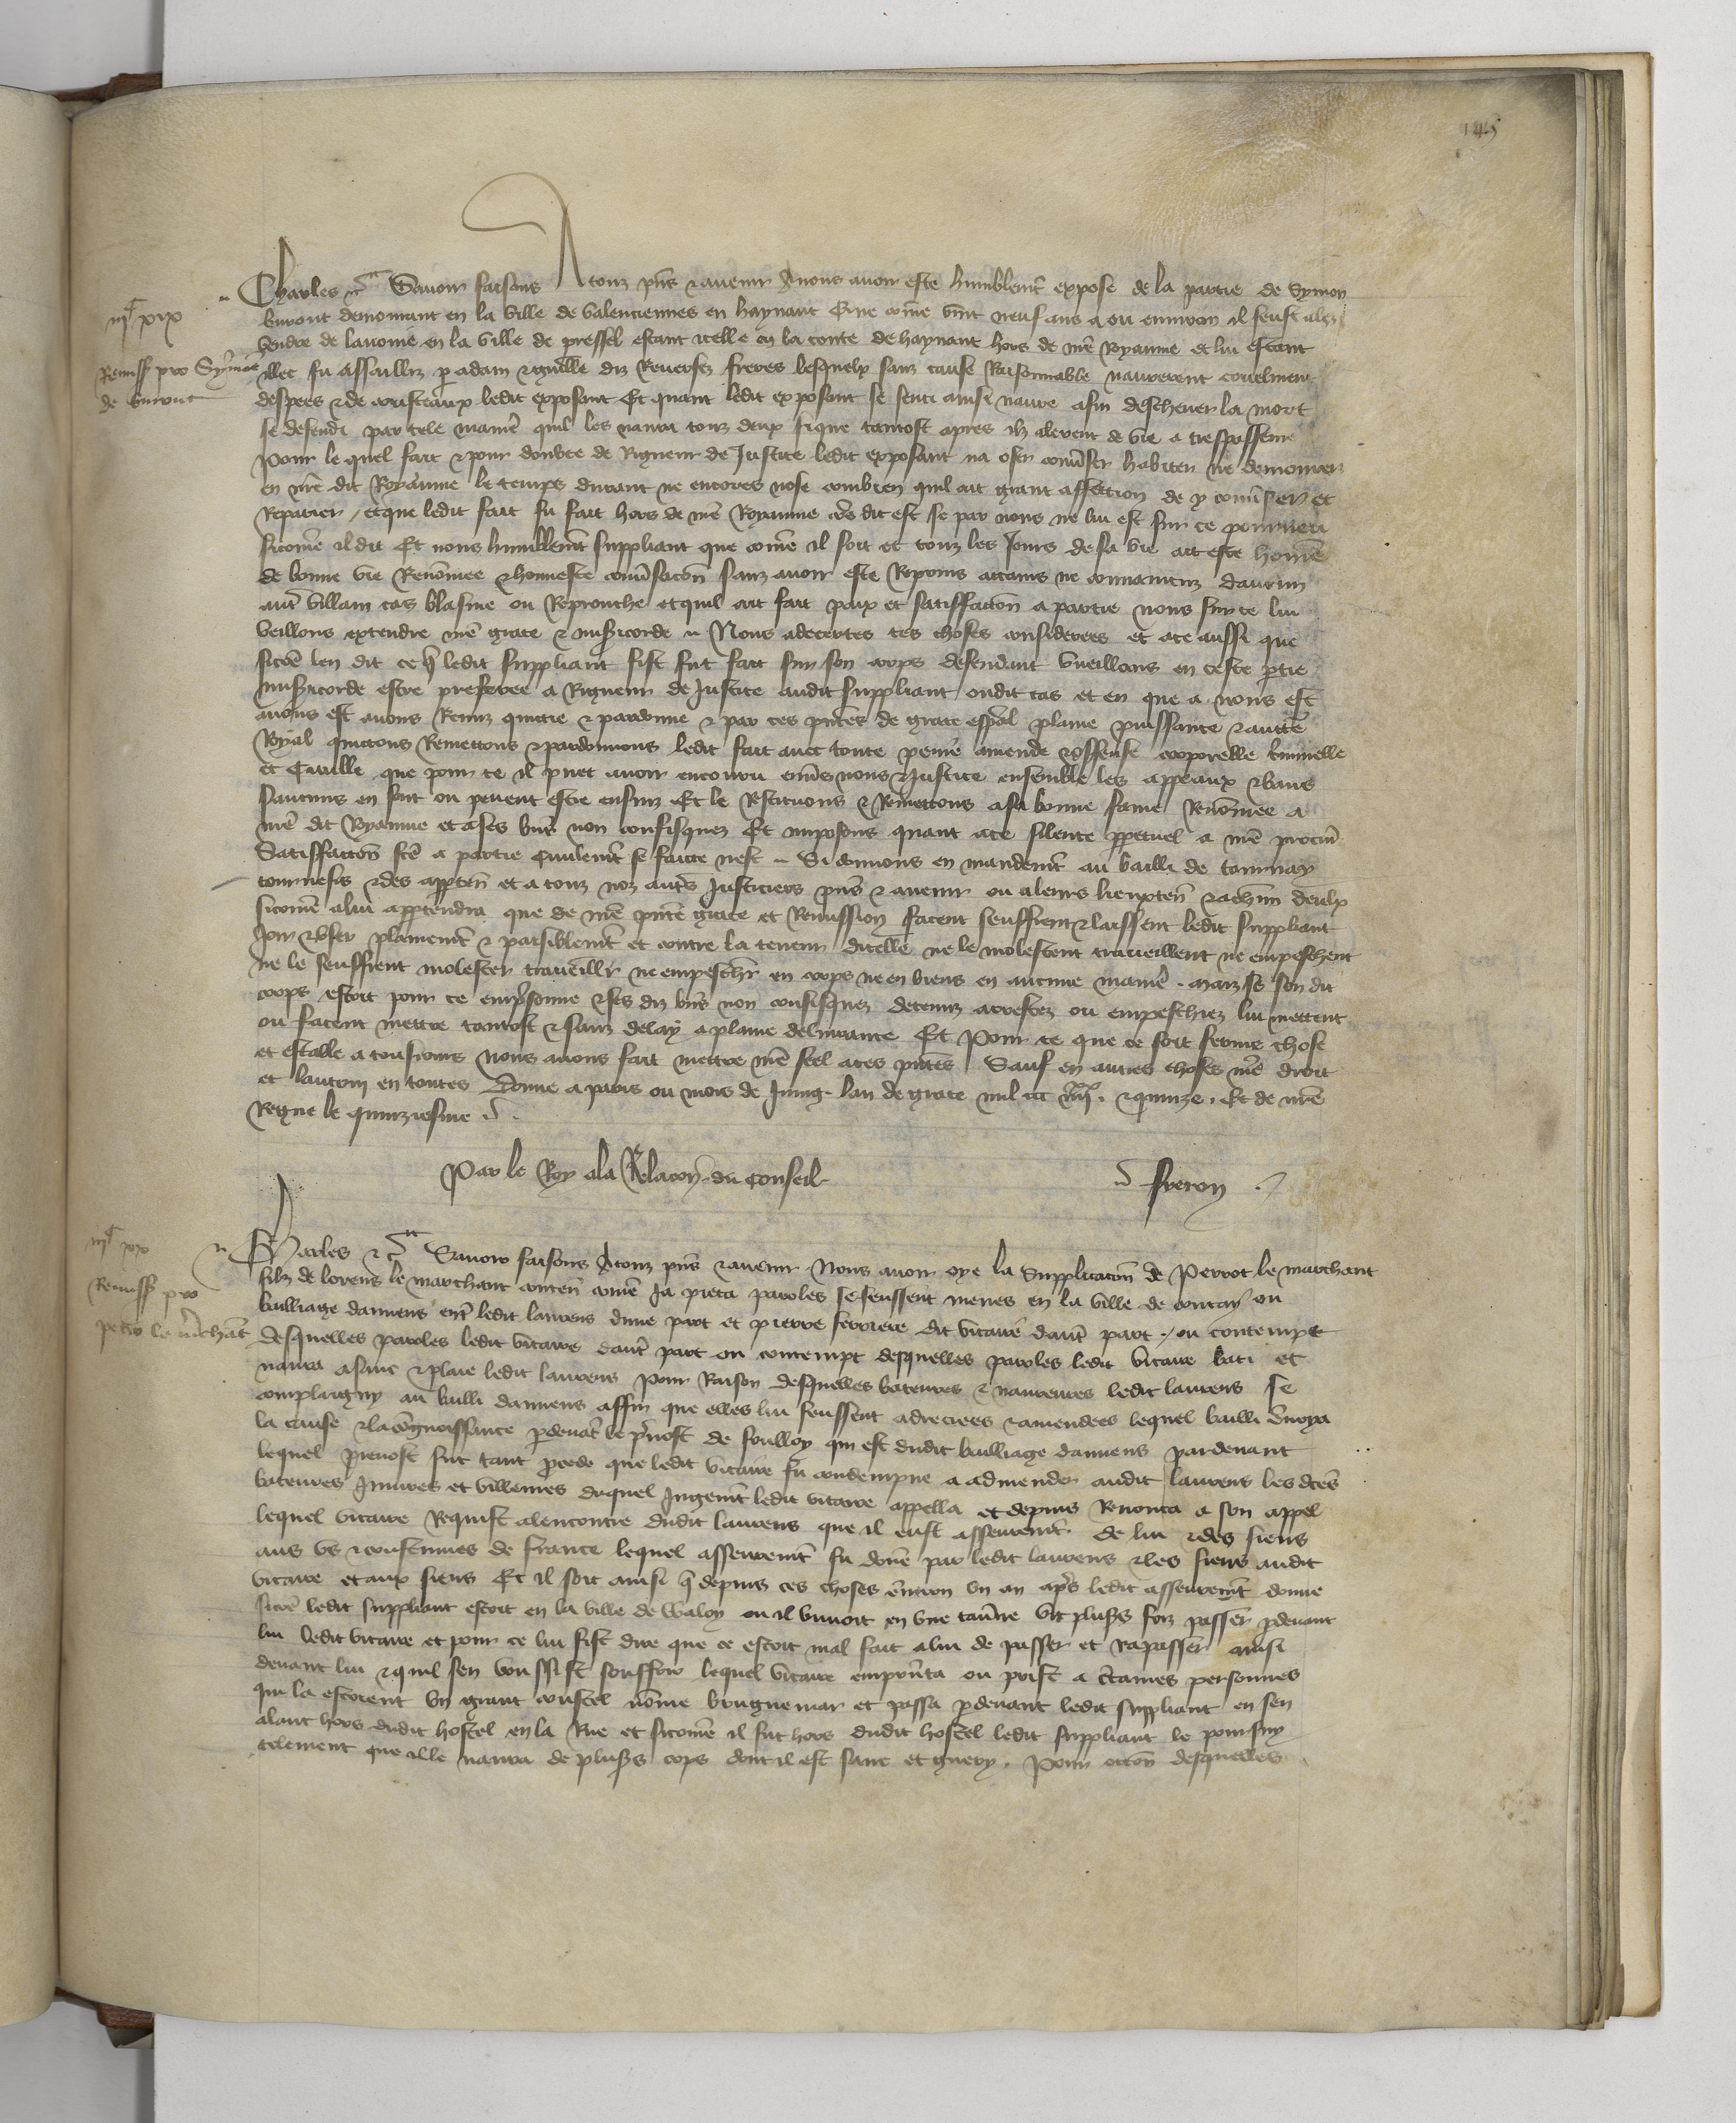 145
Charles etc Savoir faisons A touz pns et avenir A nous avoir este humblemt expose de la partie de Symon
iijc xix
Buront demourant en la ville de Valenciennes en haynaut Que come vint neuf ans a ou environ il feust alez
vendre de lavoine en la ville de pressel estant icelle en la conte de haynaut hors de nre Royaume et lui estant
Remiss pro Symone
de buront
illec fu assailliz p adam et guille diz Reversez freres lesquelx sanz cause Raisonnable navrerent cruelment
despees et de cousteaux ledit exposant Et quant ledit exposant se senti ainsi navre afin deschever la mort
se defendi par tele manie quil les navra touz deux si que tantost apres ilz alerent de vie a trespassemt
Pour le quel fait et pour doubte de Rigueur de Justice ledit exposant na ose converser habiter ne demourer
en nre dit Royaume le temps durant ne encores nose combien quil ait grant affection de y converser et
Repairier / et que ledit fait fu fait hors de nre Royaume come dit est se par nous ne lui est sur ce pourveu
sicome il dit Et nous humblemt suppliant que come il soit et touz les jours de sa vie ait este home
de bonne vie Renomee et honneste conversacon sanz avoir este Repris attains ne convaincuz daucun
autre villain cas blasme ou Reprouche et quil ait fait paix et satisfaccon a partie nous sur ce lui
veillons extendre nre grace et misericorde Nous adecertes ces choses considerees et ace aussi que
sicoe len dit ce que ledit suppliant fist fut fait sur son corps defendant vueillans en ceste ptie
misericorde estre preferee a Rigueur de Justice audit suppliant oudit cas et en que a nous est
avons est avons Remiz quictie et pardonne et par ces pntes de grace espal plaine puissance et auctte
Royal quictons Remettons et pardonnons ledit fait avec toute peine amende et offense corporelle criminelle
et Civille que pour ce il puet avoir encouru envs nous et Justice ensemble les appeaux et bans
saucuns en sont ou peuent estre ensuiz Et le Restituons et Remettons a sa bonne fame Renomee a
nre dit Royaume et a ses bns non confisquez Et imposons quant ace silence ppetuel a nre procur
Satisfaccon fce a partie Civilemt se faicte nest Si donnons en mandemt au bailli de tournay
tournesis et des apptn et a touz noz autres Justiciers pns et avenir ou a leurs lieuxten et achun deulx
sicome alui appartendra que de nre pnte grace et Remission facent seuffrent et laissent ledit suppliant
Joir et user plainemt et paisiblemt et contre la teneur dicelle ne le molestent traveillent ne empeschent
ne le seuffrent molester traveillr ne empeschr en corps ne en biens en aucune manie . maiz se son dit
corps estoit pour ce emprisonne et ses diz bns non confisquez detenuz arrestez ou empeschiez lui mettent
ou facent mettre tantost et sanz delay a plaine delivrance Et Pour ce que ce soit ferme chose
et estable a tousjours Nous avons fait mettre nre scel a ces pntes Sauf en autres choses nre droit
et lautruy en toutes Donne a paris ou mois de Juing lan de grace mil ccc iiijxx et quinze . Et de nre
Regne le quinziesme .
Par le Roy ala Relacon du Conseil
Freron
iijc xx
Charles etc Savoir faisons Atouz pns et avenir Nous avoir oye la Supplicacon de Perrot le marchant
Remiss pro
petro le mchant
filz de lorens le marchant conten come Ja pieca paroles se feussent meues en la ville de contay ou
bailliage damiens entre ledit laurens dune part et pierre ferriere dit vicaire dautre part . / ou contempt
desquelles paroles ledit vicaire dautre part ou contempt desquelles paroles ledit vicaire bati et
navra a sanc et plaie ledit laurens Pour Raison desquelles bateures et navreures ledit laurens se
complaigny au bailli damiens affin que elles lui feussent adreciees et amendees lequel bailli envoya
la cause et la congnoissance pdevat le prevost de foulloy qui est dudit bailliage damiens pardevant
lequel prevost fut tant pcede que ledit vicaire fu condempne a admender audit laurens les dces
bateures Injures et villenies duquel Jugemt ledit vicaire appella et depuis Renonca a son appel
lequel vicaire Requist alencontre dudit laurens que il eust asseuremt de lui et des siens
aus us et coustumes de france lequel asseuremt fu done par ledit laurens et les siens audit
vicaire et aux siens Et il soit ainsi que depuis ces choses environ un an aps ledit asseuremt donne
sicoe ledit suppliant estoit en la ville de Waloy ou il buvoit en une taverne vit pluss foiz passer pdevant
lui ledit vicaire et pour ce lui fist dire que ce estoit mal fait alui de passer et Rapasser ainsi
devant lui et quil sen voulsist souffrir lequel vicaire emprunta ou prist a ctaines personnes
qui la estoient un grant coustel nome brugnemar et passa pdevant ledit suppliant en sen
alant hors dudit hostel en la Rue et sicome il fut hors dudit hostel ledit suppliant le poursuy
telement que il le navra de pluss cops dont il est sane et guery . Pour occon desquelles